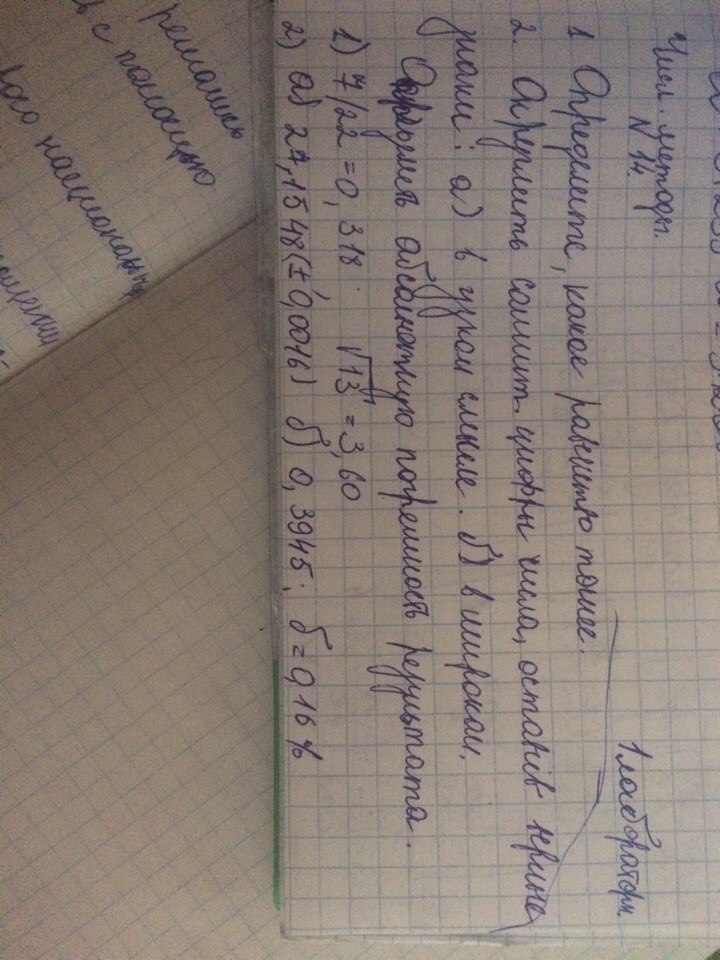 Числ. методы. 1 лаборатор.
N 14.
1 Определите, какое равенство точнее.
2. Округлить сомнит. цифры числа, оставив верные
знаки: а) в узком смысле. б) в широком.
Определить абсолютную погрешность результата.
1) 7/22 = 0,318. √13 = 3,60
2) а) 27,1548(±0,0016) б) 0,3945; δ = 0,16%
решались
с помощью
ого национальн